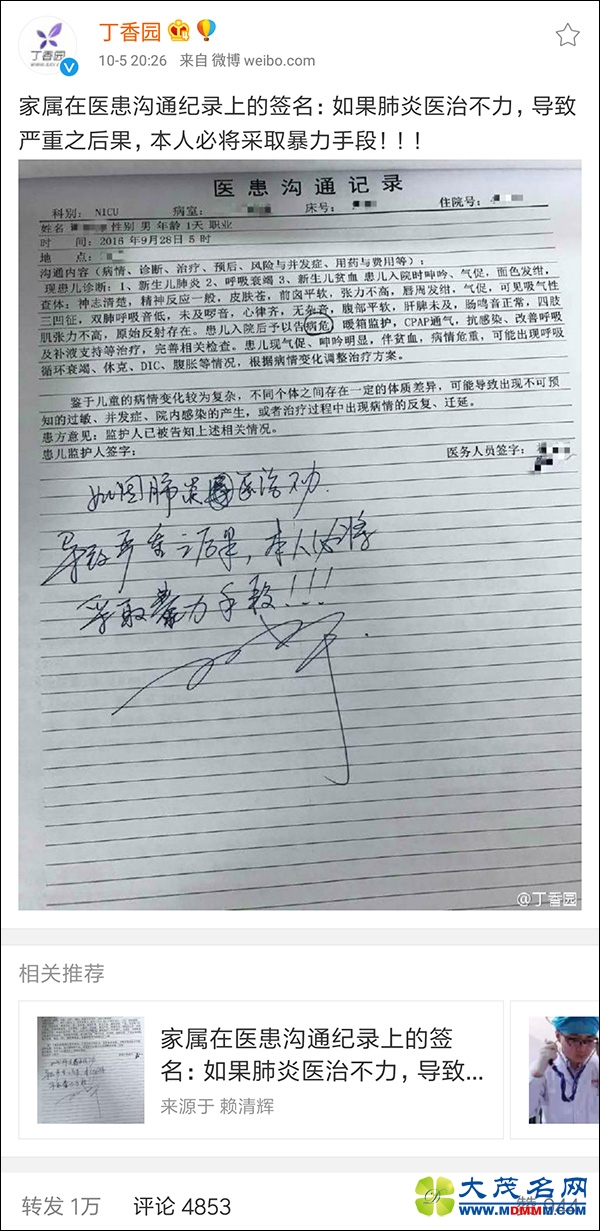 丁香园
丁香园
10-5 20:26 来自 微博 weibo.com
家属在医患沟通纪录上的签名：如果肺炎医治不力，导致
严重之后果，本人必将采取暴力手段！！！
医患沟通记录
科别： NICU 病室： 床号： 住院号：
姓名 性别 男 年龄 1天 职业
时 间：2016 年9月28日 5 时
地 点：
沟通内容（病情、诊断、治疗、预后、风险与并发症、用药与费用等）：
现患儿诊断：1、新生儿肺炎 2、呼吸衰竭 3、新生儿贫血 患儿入院时呻吟、气促，面色发绀，
查体：神志清楚，精神反应一般，皮肤苍，前囟平软，张力不高，唇周发绀，气促，可见吸气性
三凹征，双肺呼吸音低，未及啰音，心律齐，无杂音，腹部平软，肝脾未及，肠鸣音正常，四肢
肌张力不高，原始反射存在。患儿入院后予以告病危，暖箱监护，CPAP通气，抗感染、改善呼吸
及补液支持等治疗，完善相关检查。患儿现气促、呻吟明显，伴贫血，病情危重，可能出现呼吸
循环衰竭、休克、DIC、腹胀等情况，根据病情变化调整治疗方案。
鉴于儿童的病情变化较为复杂，不同个体之间存在一定的体质差异，可能导致出现不可预
知的过敏、并发症、院内感染的产生，或者治疗过程中出现病情的反复、迁延。
患方意见：监护人已被告知上述相关情况。
患儿监护人签字： 医务人员签字：
如因肺炎医治不力
导致严重之后果，本人必将
采取暴力手段！！！
@丁香园
相关推荐
家属在医患沟通纪录上的签
名：如果肺炎医治不力，导致...
来源于 赖清辉
转发 1万 评论 4853 赞 944
大茂名网
www.MDMMM.com